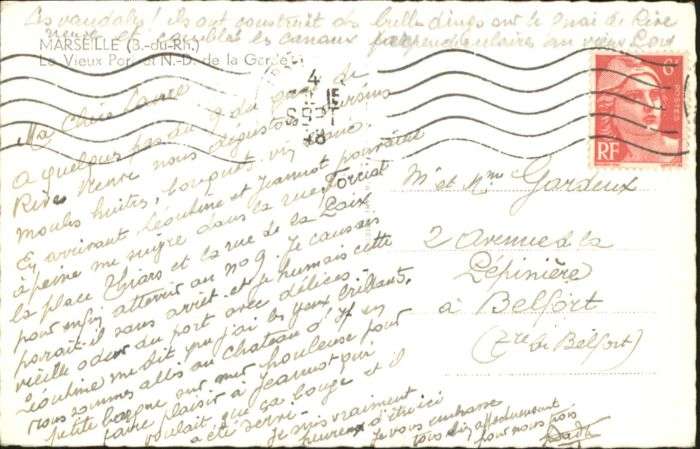 Les vandales ! ils ont construit des buildings sur le Quai de Rive
neuve et comblé les canaux perpendiculaires au vieux Port
MARSEILLE (B.-du-Rh.)
Le Vieux Port et N.-D. de la Garde
4
15
SEPT
48
6F
POSTES
RF
Ma chère
à quelques pas du 9 du quai de
Rive neuve nous dégustons oursins
moules huîtres, bouquets, vin blanc
En arrivant Léontine et Jeannot pouvaient
à peine me suivre dans la rue
la place Thiars et la rue de la Paix
pour enfin atterrir au no 9. Je causais
paraît-il sans arrêt et je humais cette
vieille odeur du port avec délices.
Léontine me dit que j'ai les yeux brillants.
nous sommes allés au Château d'If en
petite barque sur mer houleuse pour
faire plaisir à Jeannot qui
voulait que ça bouge et il
a été servi.
Je suis vraiment
heureux d'être ici
Je vous embrasse
tous bien affectueusement
pour nous trois
M et Mme Gardeux
2 Avenue de la
Pépinière
à Belfort
(Tre de Belfort)